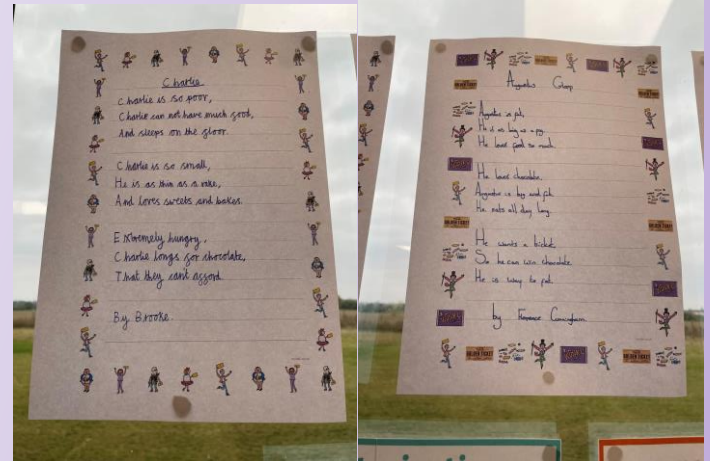 Charlie
Charlie is so poor,
Charlie can not have much food,
And sleeps on the floor.
Charlie is so small,
He is as thin as a rake,
And loves sweets and bakes.
Extremely hungry,
Charlie longs for chocolate,
That they can't afford.
By Brooke.
Augustus Gloop
Augustus is fat.
He is as big as a pig.
He loves food so much.
He loves chocolate.
Augustus is big and fat.
He eats all day long.
He wants a ticket
So he can win chocolate.
He is way to fat.
by Cunningham
GOLDEN TICKET
GOLDEN TICKET